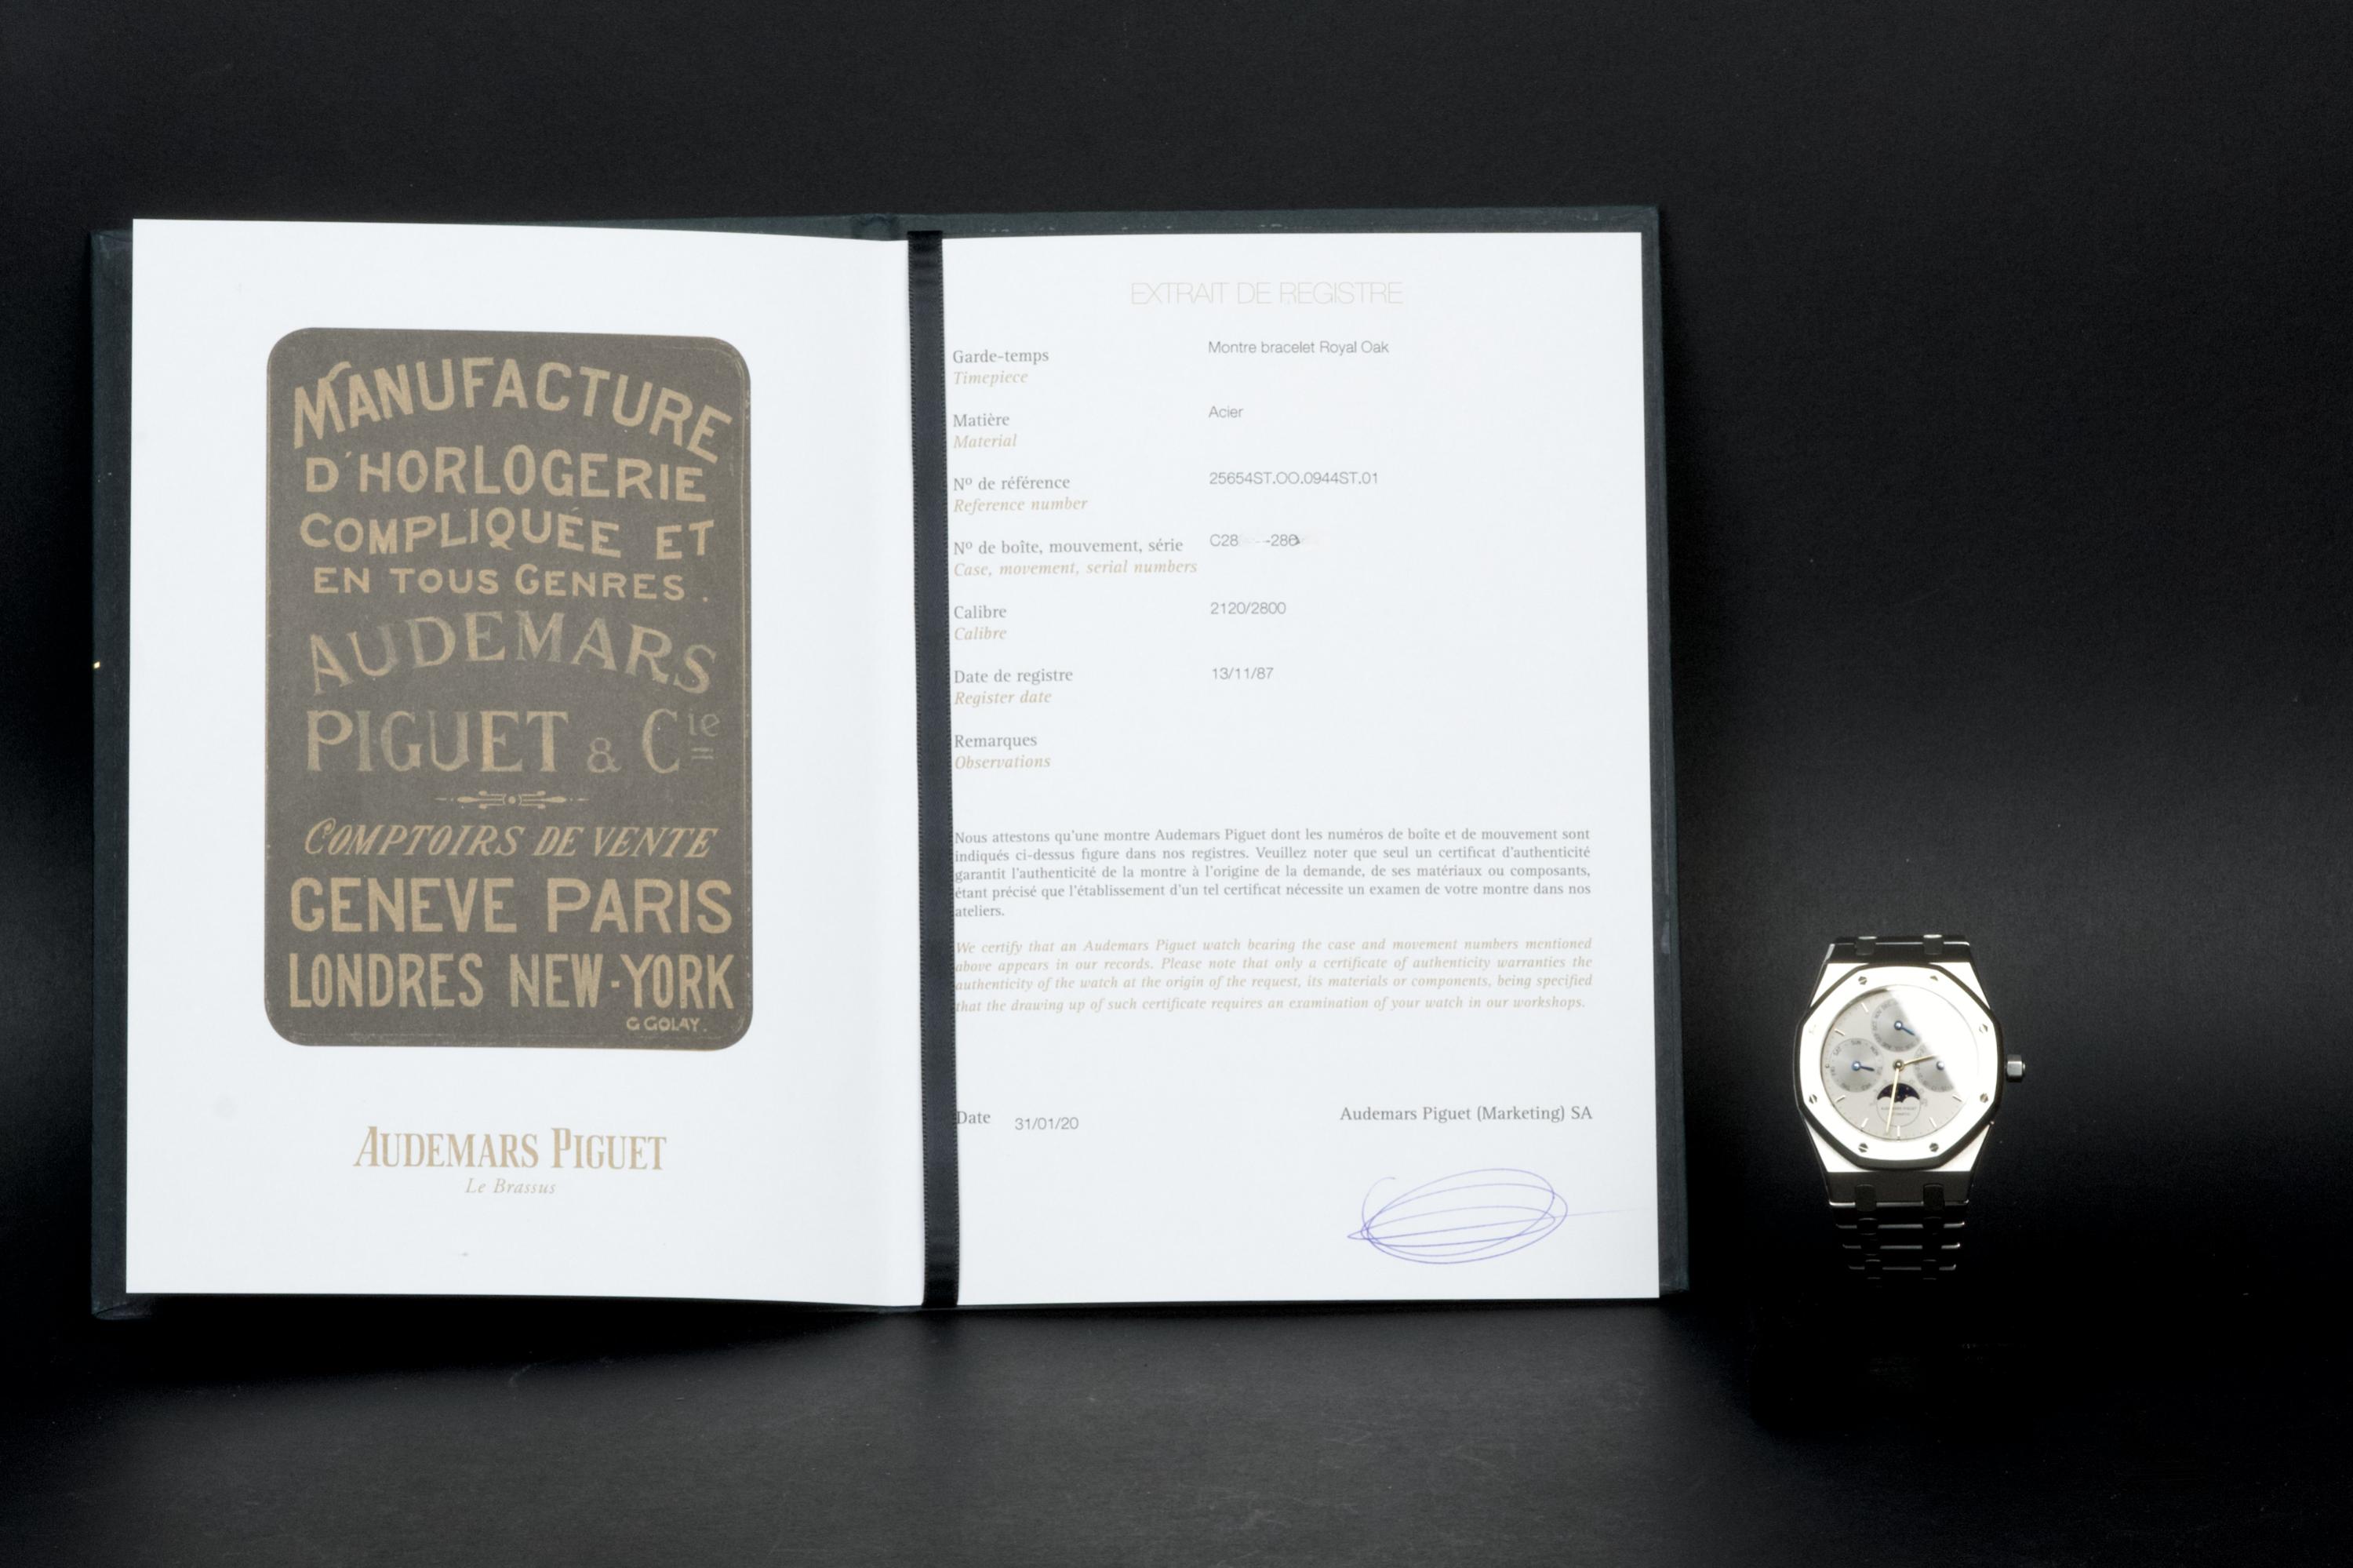 MANUFACTURE
D'HORLOGERIE
COMPLIQUÉE ET
EN TOUS GENRES.
AUDEMARS
PIGUET & Cie
COMPTOIRS DE VENTE
GENEVE PARIS
LONDRES NEW-YORK
G GOLAY.
AUDEMARS PIGUET
Le Brassus
EXTRAIT DE REGISTRE
Garde-temps
Timepiece
Montre bracelet Royal Oak
Matière
Material
Acier
Nº de référence
Reference number
25654ST.OO.0944ST.01
Nº de boîte, mouvement, série
Case, movement, serial numbers
C28 -286
Calibre
Calibre
2120/2800
Date de registre
Register date
13/11/87
Remarques
Observations
Nous attestons qu'une montre Audemars Piguet dont les numéros de boîte et de mouvement sont
indiqués ci-dessus figure dans nos registres. Veuillez noter que seul un certificat d'authenticité
garantit l'authenticité de la montre à l'origine de la demande, de ses matériaux ou composants,
étant précisé que l'établissement d'un tel certificat nécessite un examen de votre montre dans nos
ateliers.
We certify that an Audemars Piguet watch bearing the case and movement numbers mentioned
above appears in our records. Please note that only a certificate of authenticity warranties the
authenticity of the watch at the origin of the request, its materials or components, being specified
that the drawing up of such certificate requires an examination of your watch in our workshops.
Date 31/01/20
Audemars Piguet (Marketing) SA